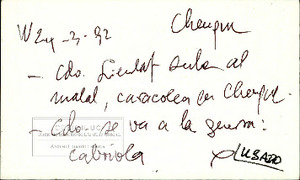 24-3-92 Cheuque
- Cdo. Lientaf sube al
malal, caracolea en Cheuque.
- Cdo. se va a la guerra:
cabriola
USADO